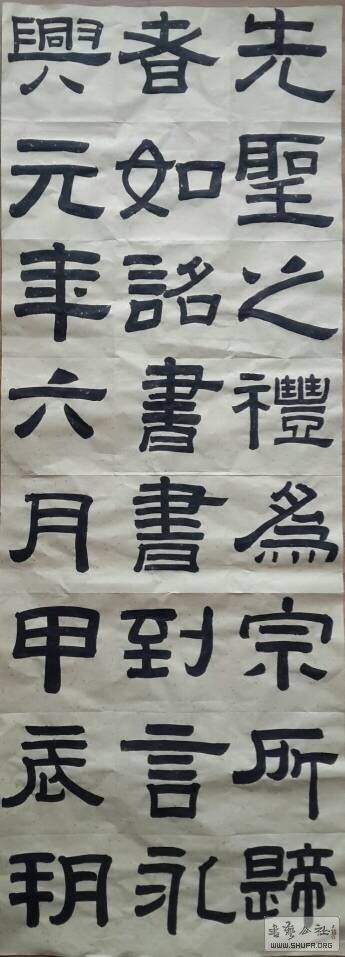 先聖之禮爲宗所歸
者如詔書書到言永
興元年六月甲辰朔
書藝公社
WWW.SHUFA.ORG